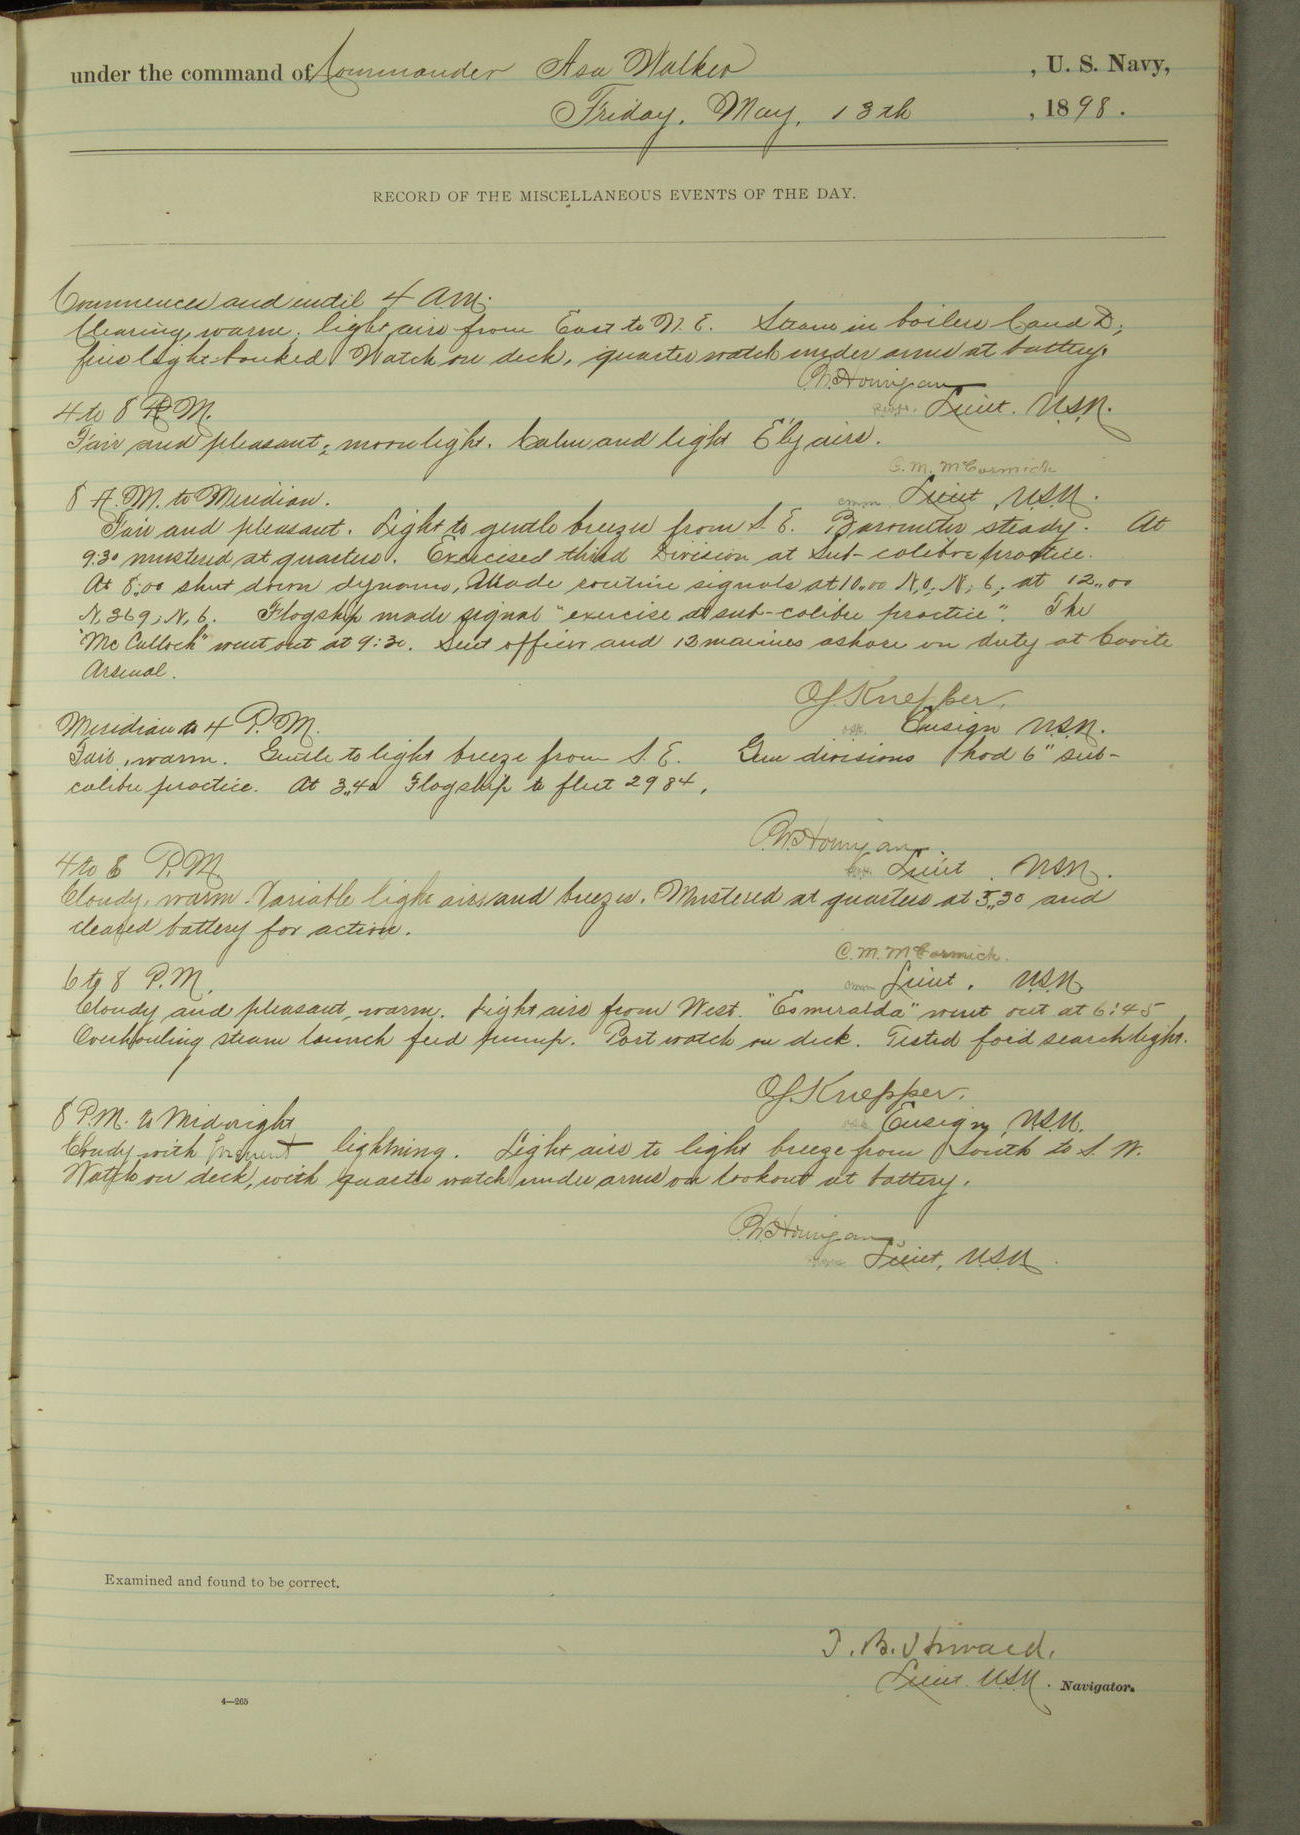 under the command of Commander Asa Walker, U. S. Navy,
Friday, May, 13th, 1898.
RECORD OF THE MISCELLANEOUS EVENTS OF THE DAY.
Commences and until 4 A.M.
Clearing, warm; light airs from East to N. E. Steam in boilers C and D;
fires light banked. Watch on deck, quarter watch under arms at battery.
P.W. Hourigan
Lieut. U.S.N.
4 to 8 A.M.
Fair and pleasant; moonlight. Calm and light E'ly airs.
C. M. McCormick
Lieut, U.S.N.
8 A.M. to Meridian.
Fair and pleasant. Light to gentle breeze from S. E. Barometer steady. At
9:30 mustered at quarters. Exercised third Division at Sub-calibre practice.
At 8:00 shut down dynamo, Made routine signals at 10,,00 N,0; N, 6; at 12,,00
N, 369; N, 6. Flagship made signal "exercise at sub-calibre practice". The
"McCulloch" went out at 9:30. Sent officer and 13 marines ashore on duty at Cavite
Arsenal.
O.S. Knepper,
Ensign U.S.N.
Meridian to 4 P.M.
Fair, warm. Gentle to light breeze from S. E. Gun divisions had 6" sub-
calibre practice. At 3,,40 Flagship to fleet 2984,
P.W. Hourigan.
Lieut, U.S.N.
4 to 6 P.M.
Cloudy, warm. Variable light airs and breezes. Mustered at quarters at 5,,30 and
cleared battery for action.
C. M. McCormick.
Lieut, U.S.N.
6 to 8 P.M.
Cloudy and pleasant, warm. Light airs from West. "Esmeralda" went out at 6:45
Overhauling steam launch feed pump. Port watch on deck. Tested for'd searchlight.
O.S. Knepper,
Ensign, U.S.N.
8 P.M. to Midnight
Cloudy with frequent lightning. Light airs to light breeze from South to S. W.
Watch on deck, with quarter watch under arms on lookout at battery.
P.W. Hourigan,
Lieut, U.S.N.
Examined and found to be correct.
T. B. Howard,
Lieut U.S.N. Navigator.
4—265